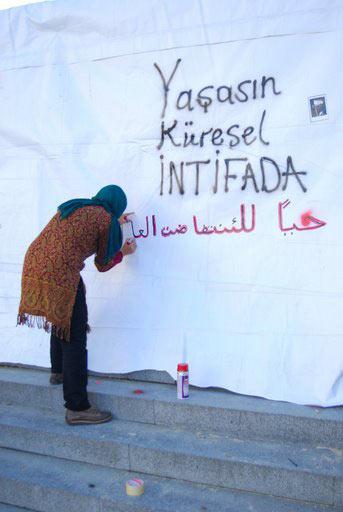 Yaşasın
Küresel
İNTİFADA
حباً للئنتفاضت العا